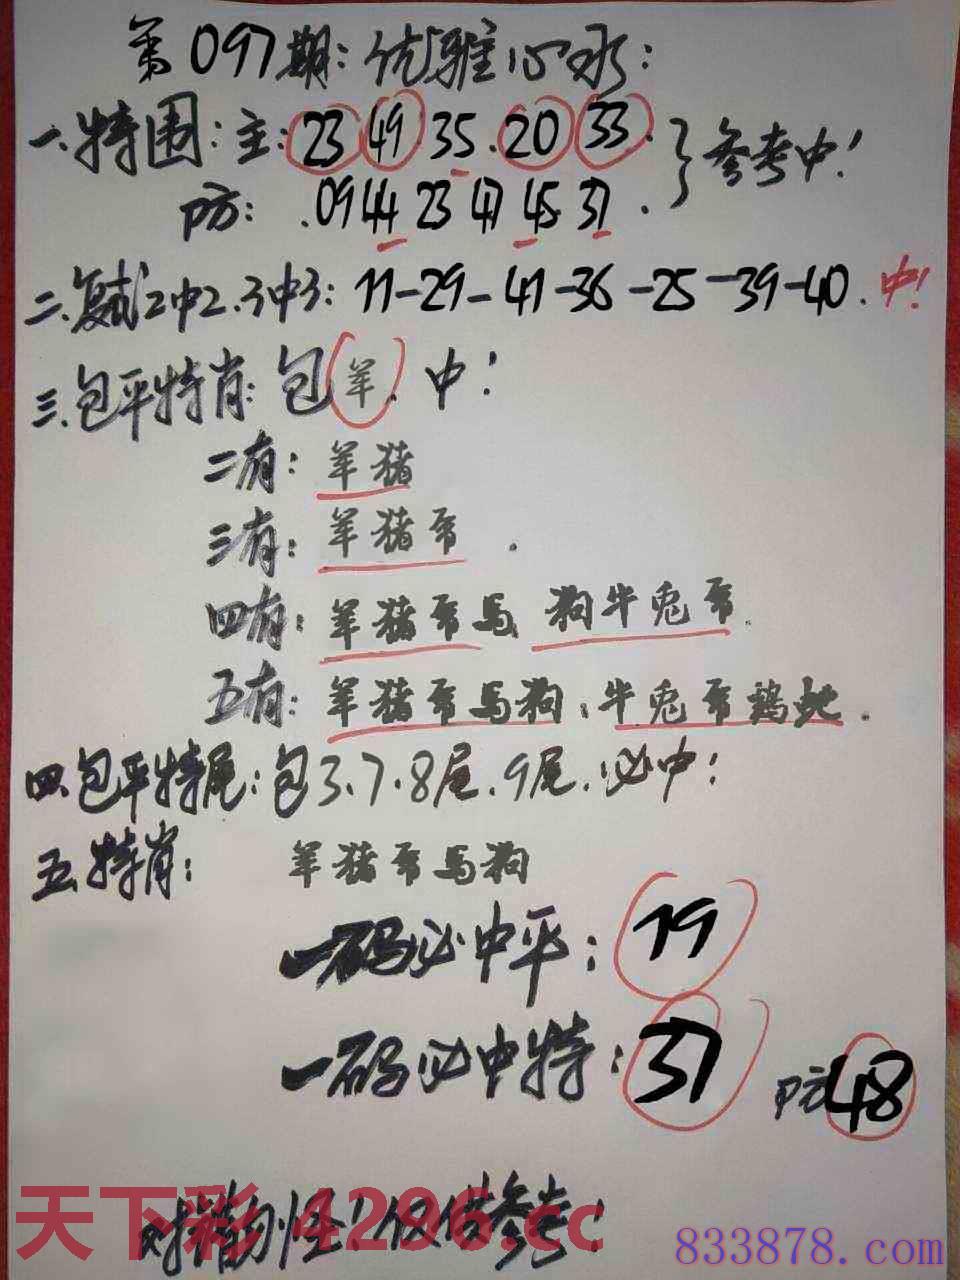 第097期：优雅心水：
一.特围：主：23 49 35.20 33. }参考中！
防：.09 44 23 47 45 37.
二.复式2中2.3中3：11-29-41-36-25-39-40.中！
三.包平特肖：包羊.中！
二有：羊猪
三有：羊猪
四有：羊猪 马 狗牛兔
五有：羊猪 马狗.牛兔 鸡蛇.
四.包平特尾：包3.7.8尾.9尾.必中！
五.特肖：羊猪 马狗
一码必中平：19
一码必中特：37 防48
天下彩 4296.cc
对错勿怪！仅供参考！
833878.com